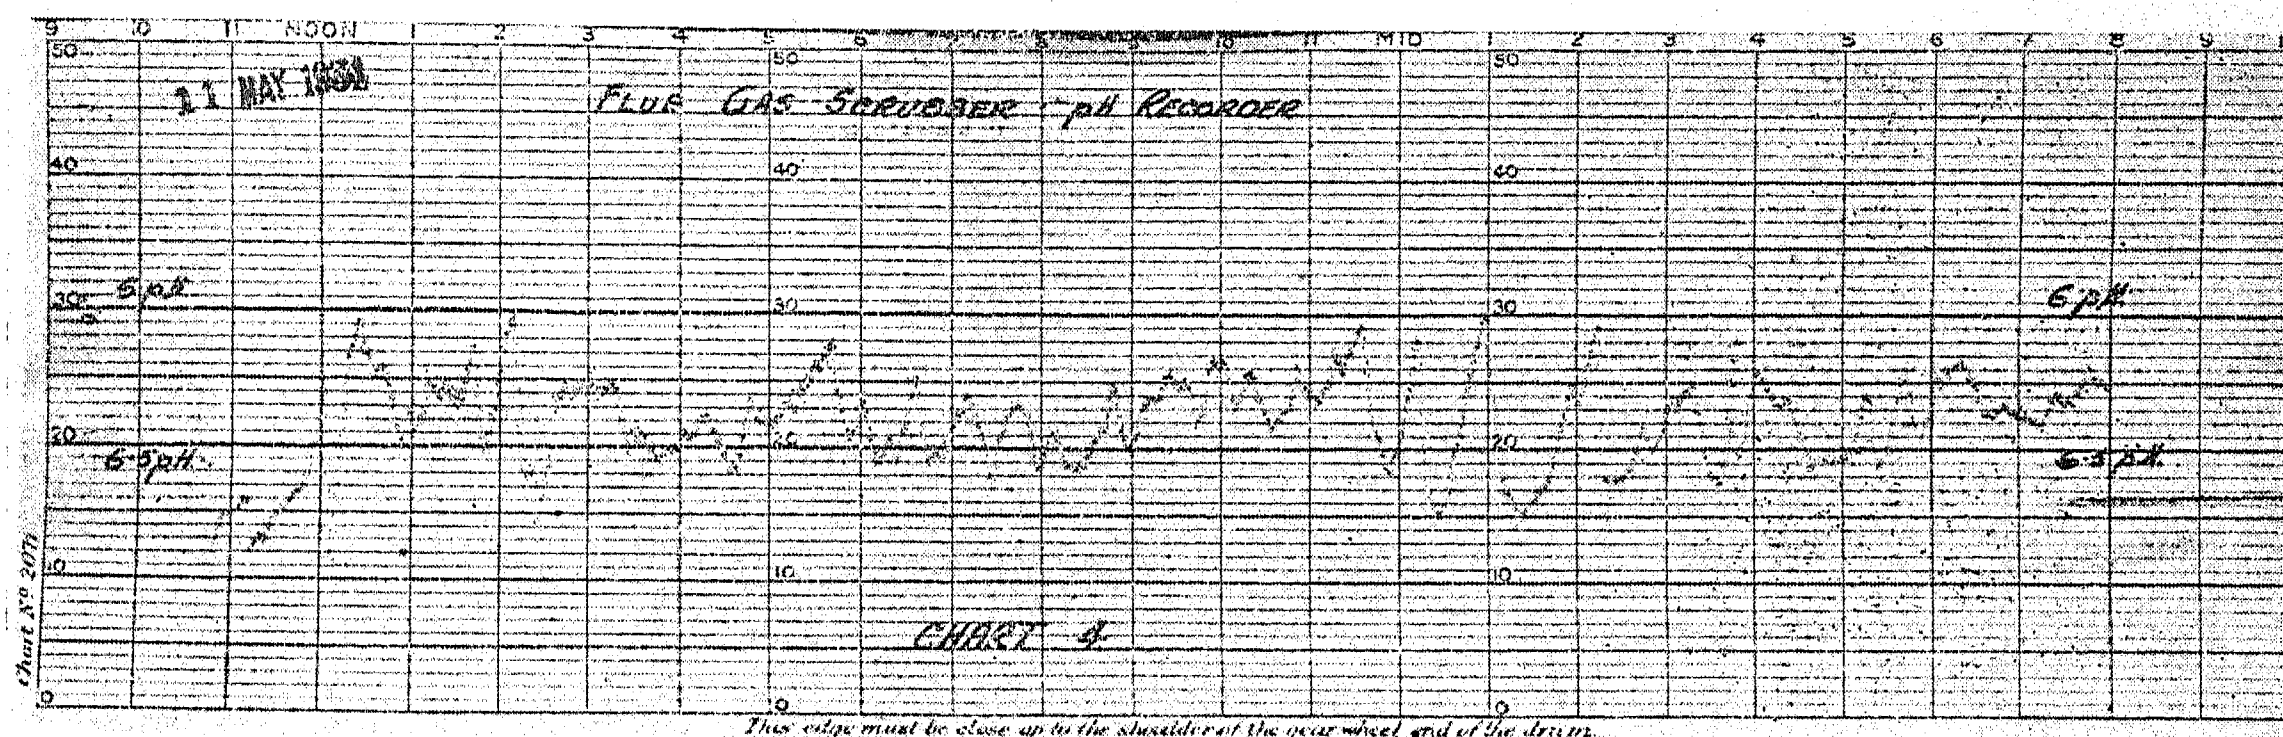 9 10 11 NOON 1 2 3 4 5 6 7 8 9 10 11 MID 1 2 3 4 5 6 7 8 9
50 50 50
11 MAY
FLUE GAS SCRUBBER - pH RECORDER
40 40 40
6 pH 6 pH
30 30 30
20 20 20
6·5 pH 6·5 pH
10 10 10
CHART 4
0 0 0
Chart No 2071
This edge must be close up to the shoulder of the gear wheel end of the drum.